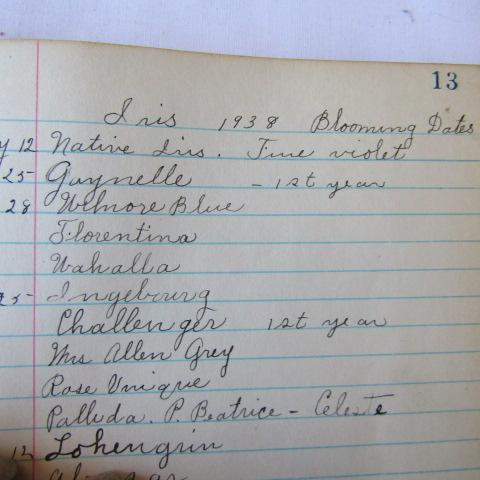 13
Iris 1938 Blooming Dates
y 12 Native Iris. True violet
25 Guynelle - 1st year
28 Wilmore Blue
Florentina
Wahalla
25 Ingebourg
Challenger 1st year
Mrs Allen Grey
Rose Unique
Pallida. P. Beatrice - Celeste
12 Lohengrin